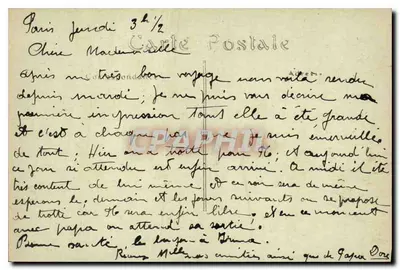 Paris jeudi 3h 1/2
Chère Mademoiselle
Carte Postale
après un très bon voyage nous voilà rendu
depuis mardi; je ne puis vous décrire ma
première impression tant elle à été grande
et c'est a chaque pas que je suis émerveillé
de tout; Hier on a trotté pour et aujourd'hui
ce jour si attendu est enfin arrivé. A midi il été
très content de lui même et ce soir sera de même
espérons le. demain et les jours suivants on se propose
de trotté car sera enfin libre. et en ce moment
avec papa on attend sa sortie.
Bonne santé, le à Irma.
Mlle nos amitiés ainsi que de Papa